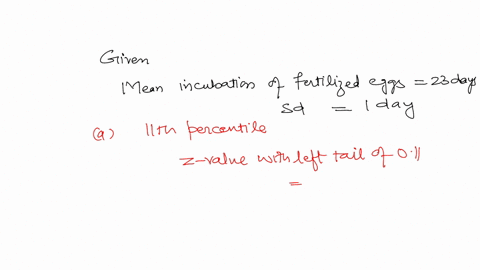 Given
Mean incubation of fertilized eggs = 23 days
Sd = 1 day
(a) 11th percentile
Z-value with left tail of 0.11
=